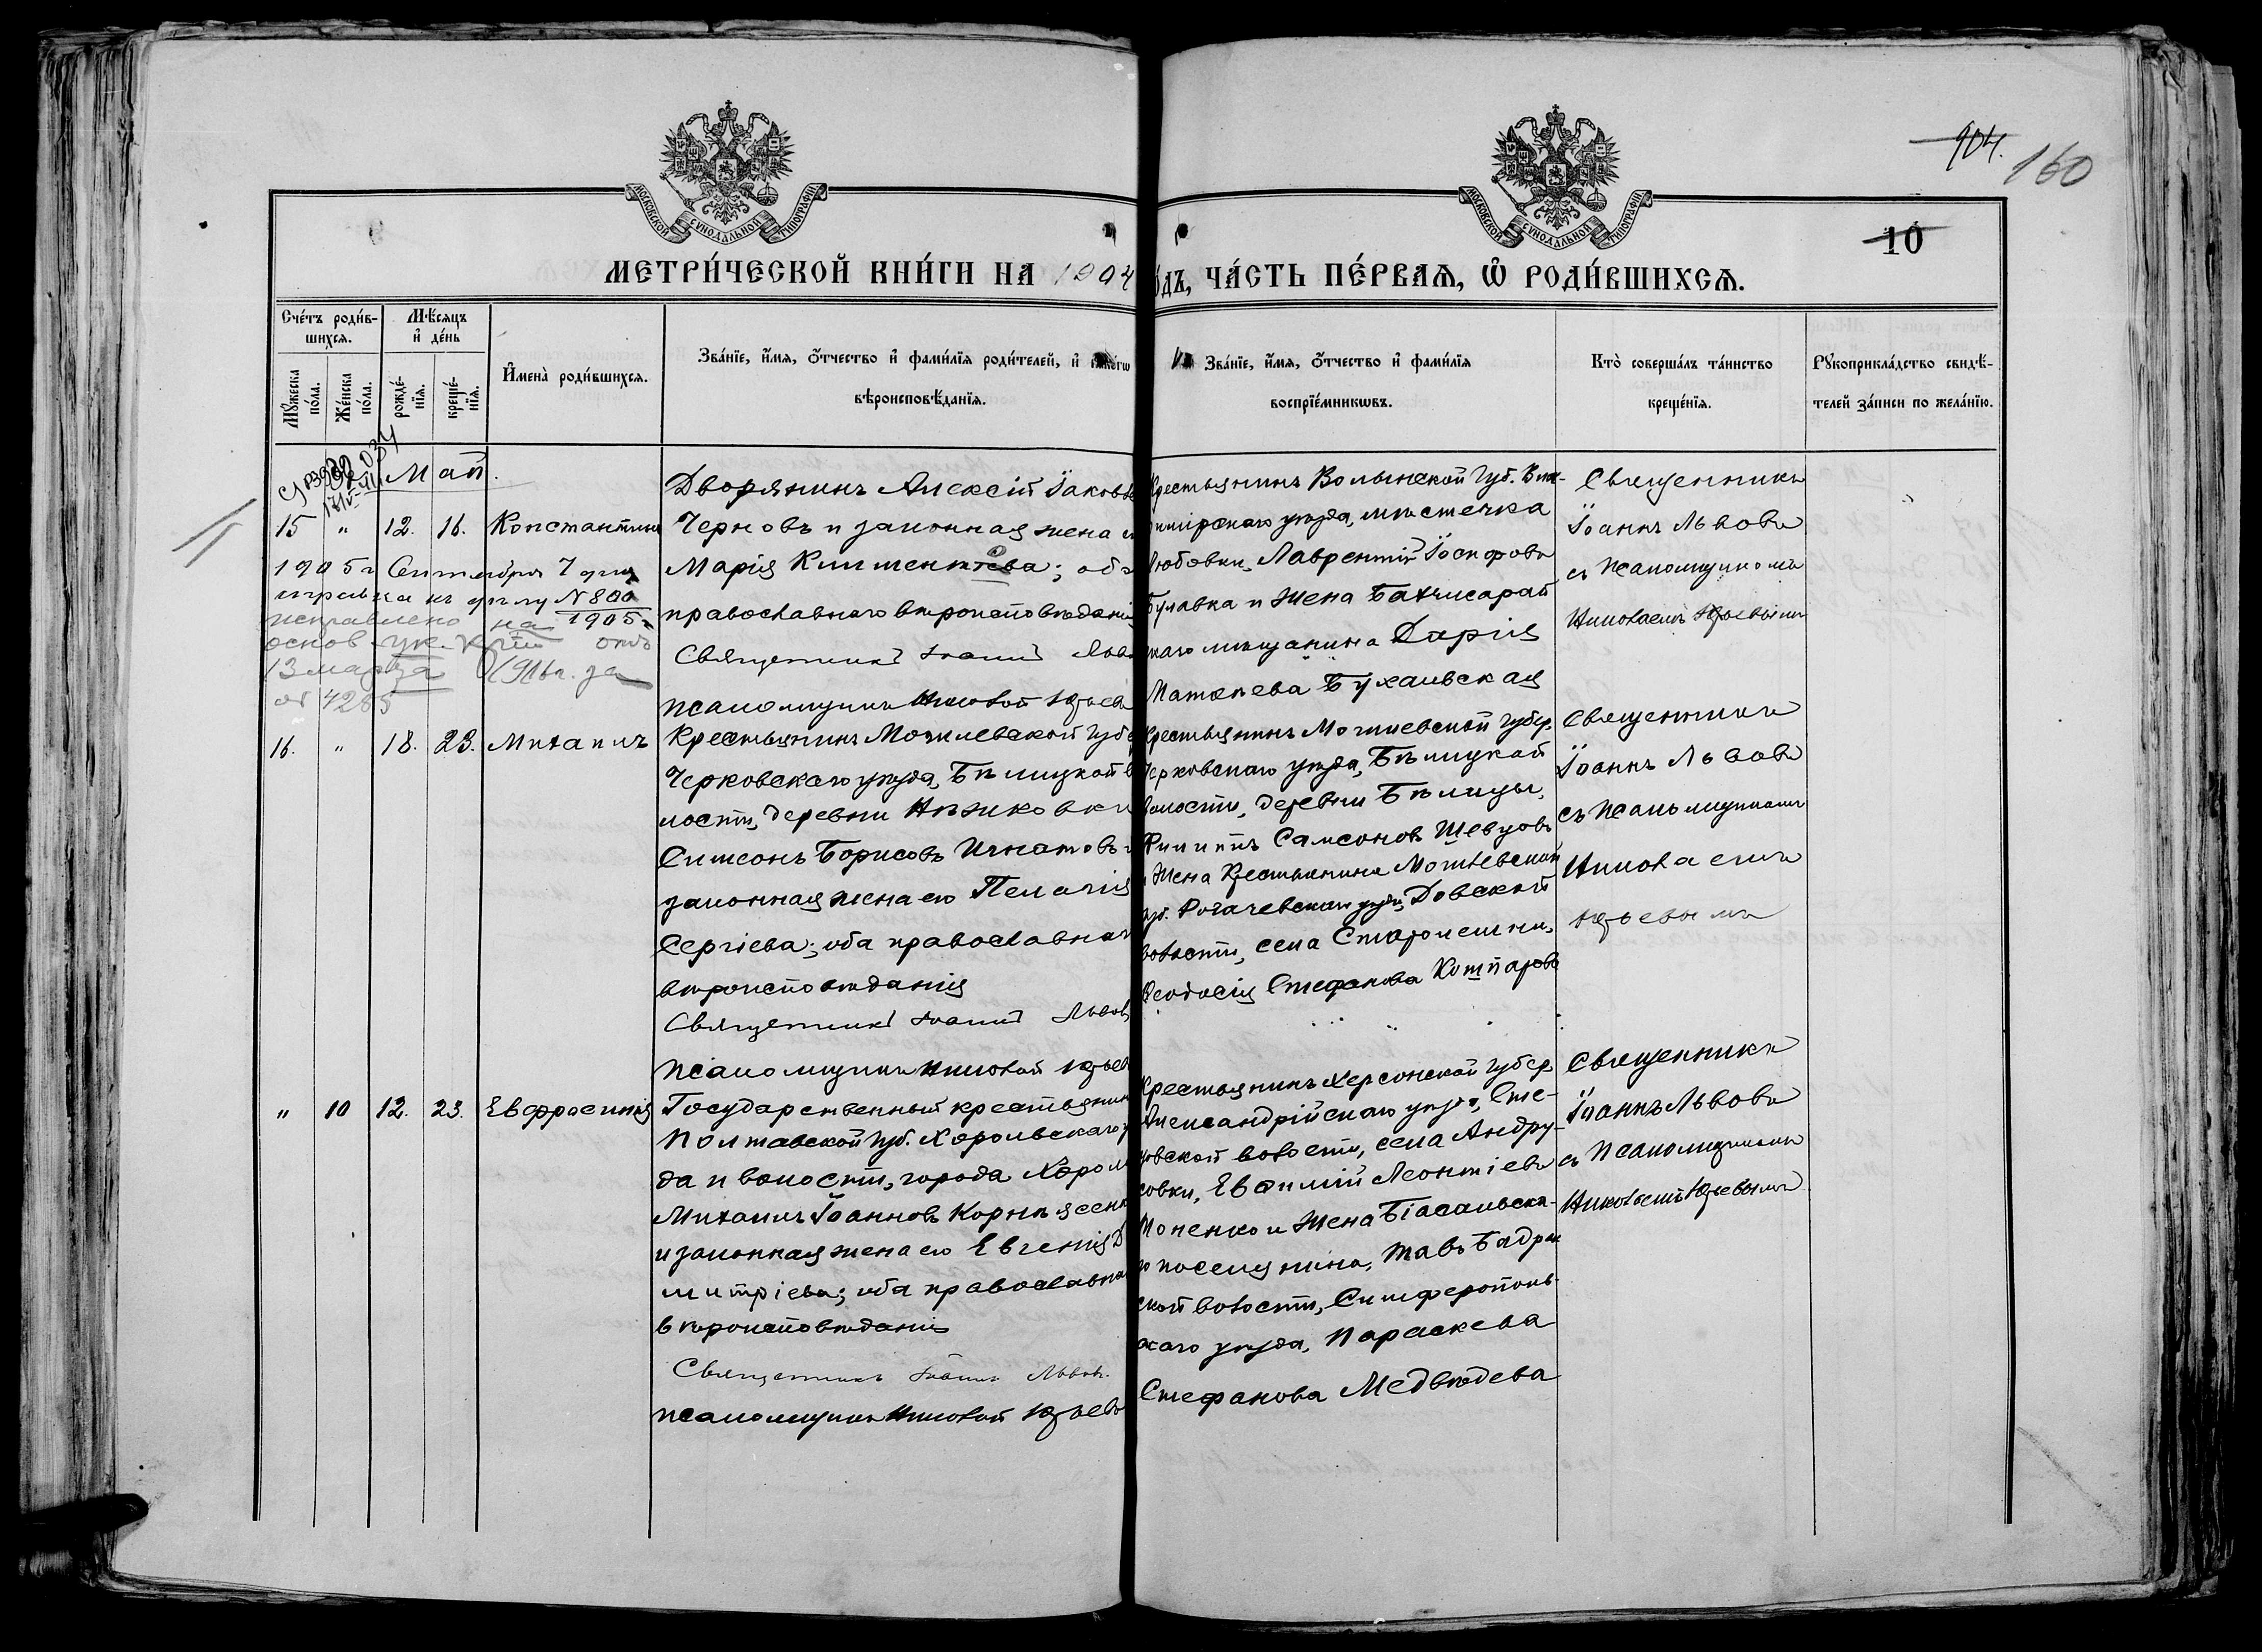 904.
160
МОСКОВСКОЙ СѴНОДАЛЬНОЙ ТИПОГРАФІИ
МОСКОВСКОЙ СѴНОДАЛЬНОЙ ТИПОГРАФІИ
10
МЕТРИ́ЧЕСКОЙ КНИ́ГИ НА 1904
о́дъ, ЧА́СТЬ ПЕ́РВАѦ, Ѡ҆ РОДИ́ВШИХСѦ.
Сче́тъ роди́в-
шихсѧ.
Мѣ́сѧцъ
и҆ де́нь
Мꙋ́жеска
по́ла.
Же́нска
по́ла.
рожде́-
нїѧ.
креще́-
нїѧ.
И҆мена̀ роди́вшихсѧ.
Зва́нїе, и҆́мѧ, ѻ҆́тчество и҆ фами́лїѧ роди́телей, и҆ како́гѡ
вѣроисповѣ́данїѧ.
Зва́нїе, и҆́мѧ, ѻ҆́тчество и҆ фами́лїѧ
воспрїе́мникѡвъ.
Кто̀ соверша́лъ та́инство
креще́нїѧ.
Рꙋкоприкла́дство свидѣ́-
телей за́писи по жела́нїю.
Май.
15 " 12. 16. Константинъ
Дворянинъ Алексій Іаковле
Черновъ и законная жена
Марія Климентіева; оба
православнаго вѣроисповѣданія
Священникъ Іоаннъ Львов
псаломщикъ Николай Юрьевъ
Крестьянинъ Волынской Губ. Вла-
димірскаго уѣзда, мѣстечка
Любовки, Лаврентій Іосифовъ
Булавка и жена Бахчисарай
скаго мѣщанина Дарія
Матѳѣева Бухаивская
Священникъ
Іоаннъ Львовъ
съ псаломщикомъ
Николаемъ Юрьевымъ
1905 г Сентября 7 дня
справка къ дѣлу №800
1905 г
исправлено на
основ. ук. отъ
13 марта 1916 г. за
№ 4285
16. " 18. 23. Михаилъ
Крестьянинъ Могилевской Губ
Чериковскаго уѣзда, Бѣлицкой в
лости, деревни
Симеонъ Борисовъ Игнатовъ и
законная жена его Пелагія
Сергіева; оба православнаго
вѣроисповѣданія
Священникъ Іоаннъ Львовъ
псаломщикъ Николай Юрьевъ
Крестьянинъ Могилевской Губер.
Чериковскаго уѣзда, Бѣлицкой
волости, деревни Бѣлицы,
Филиппъ Самсоновъ Шевцовъ
и жена Крестьянина Могилевской
губ. Рогачевскаго уѣзда, Довской
волости, села
Ѳеодосія Стефанова
Священникъ
Іоаннъ Львовъ
съ псаломщикомъ
Николаемъ
Юрьевымъ
" 10 12. 23. Евфросинія
Государственный крестьянинъ
Полтавской Губ. Хорольскаго у
да и волости, города Хорола
Михаилъ Іоанновъ Корнѣцсенко
и законная жена его Евгенія Д
митріева; оба православнаго
вѣроисповѣданія
Священникъ Іоаннъ Львовъ.
псаломщикъ Николай Юрьевъ
Крестьянинъ Херсонской Губер.
Александрійскаго уѣзда, Сте-
цовской волости, села Андру-
совки, Евѳимій Леонтіевъ
и жена Біасальска-
го поселянина, Тавъ Бадрак
ской волости, Симферополь
скаго уѣзда, Параскева
Стефанова Медвѣдева
Священникъ
Іоаннъ Львовъ
съ псаломщикомъ
Николаемъ Юрьевымъ